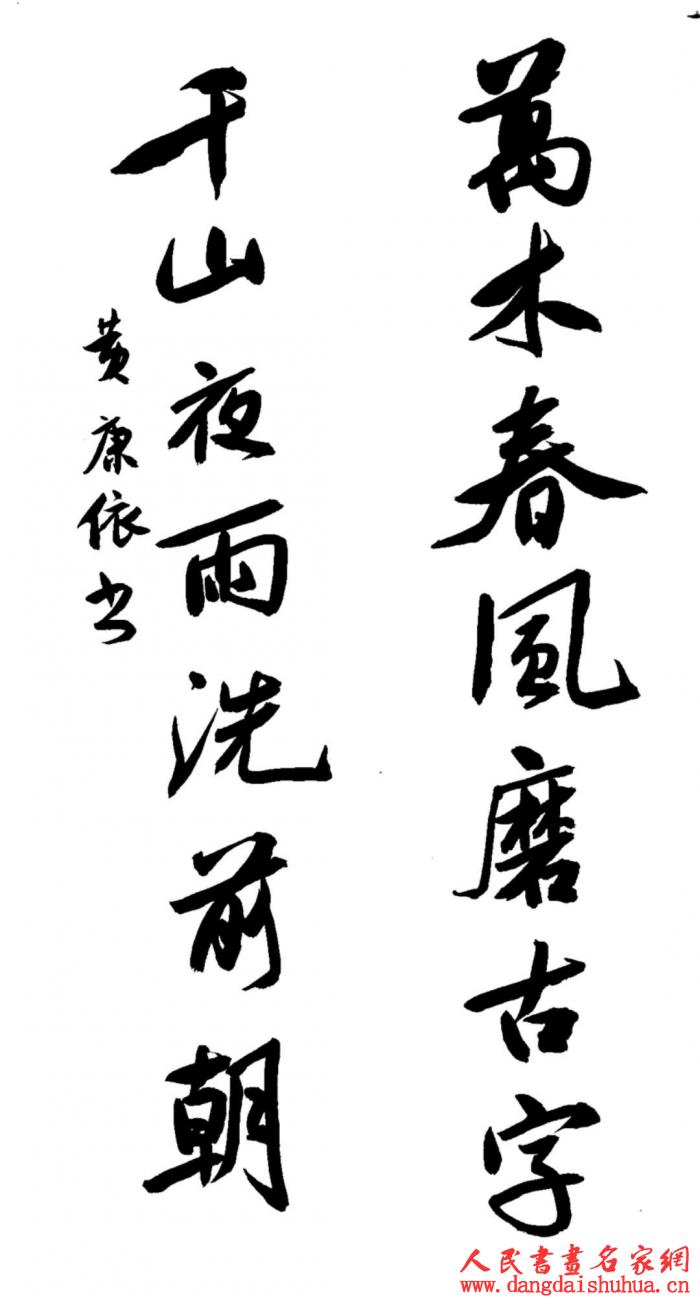 萬木春風磨古字
千山夜雨洗前朝
黄康依书
人民書畫名家網
www.dangdaishuhua.cn